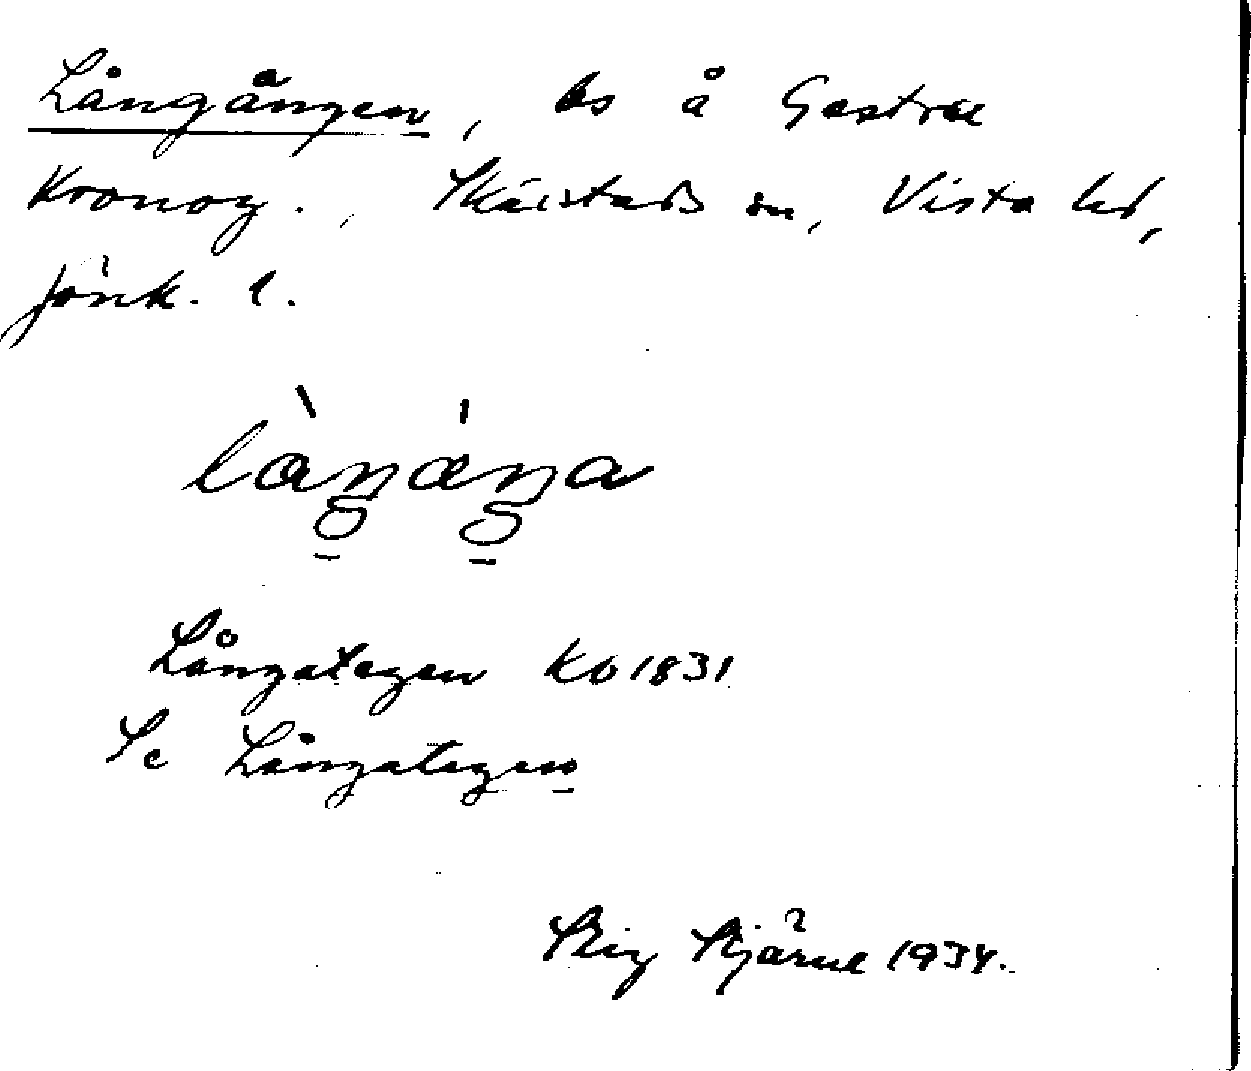 Långången, ås å Gestrae
Kronog., Skärstads sn, Vista hd,
Jönk. l.
làŋáŋa
Långategen KB 1831
Se Långategen
Stig Stjärne 1934.